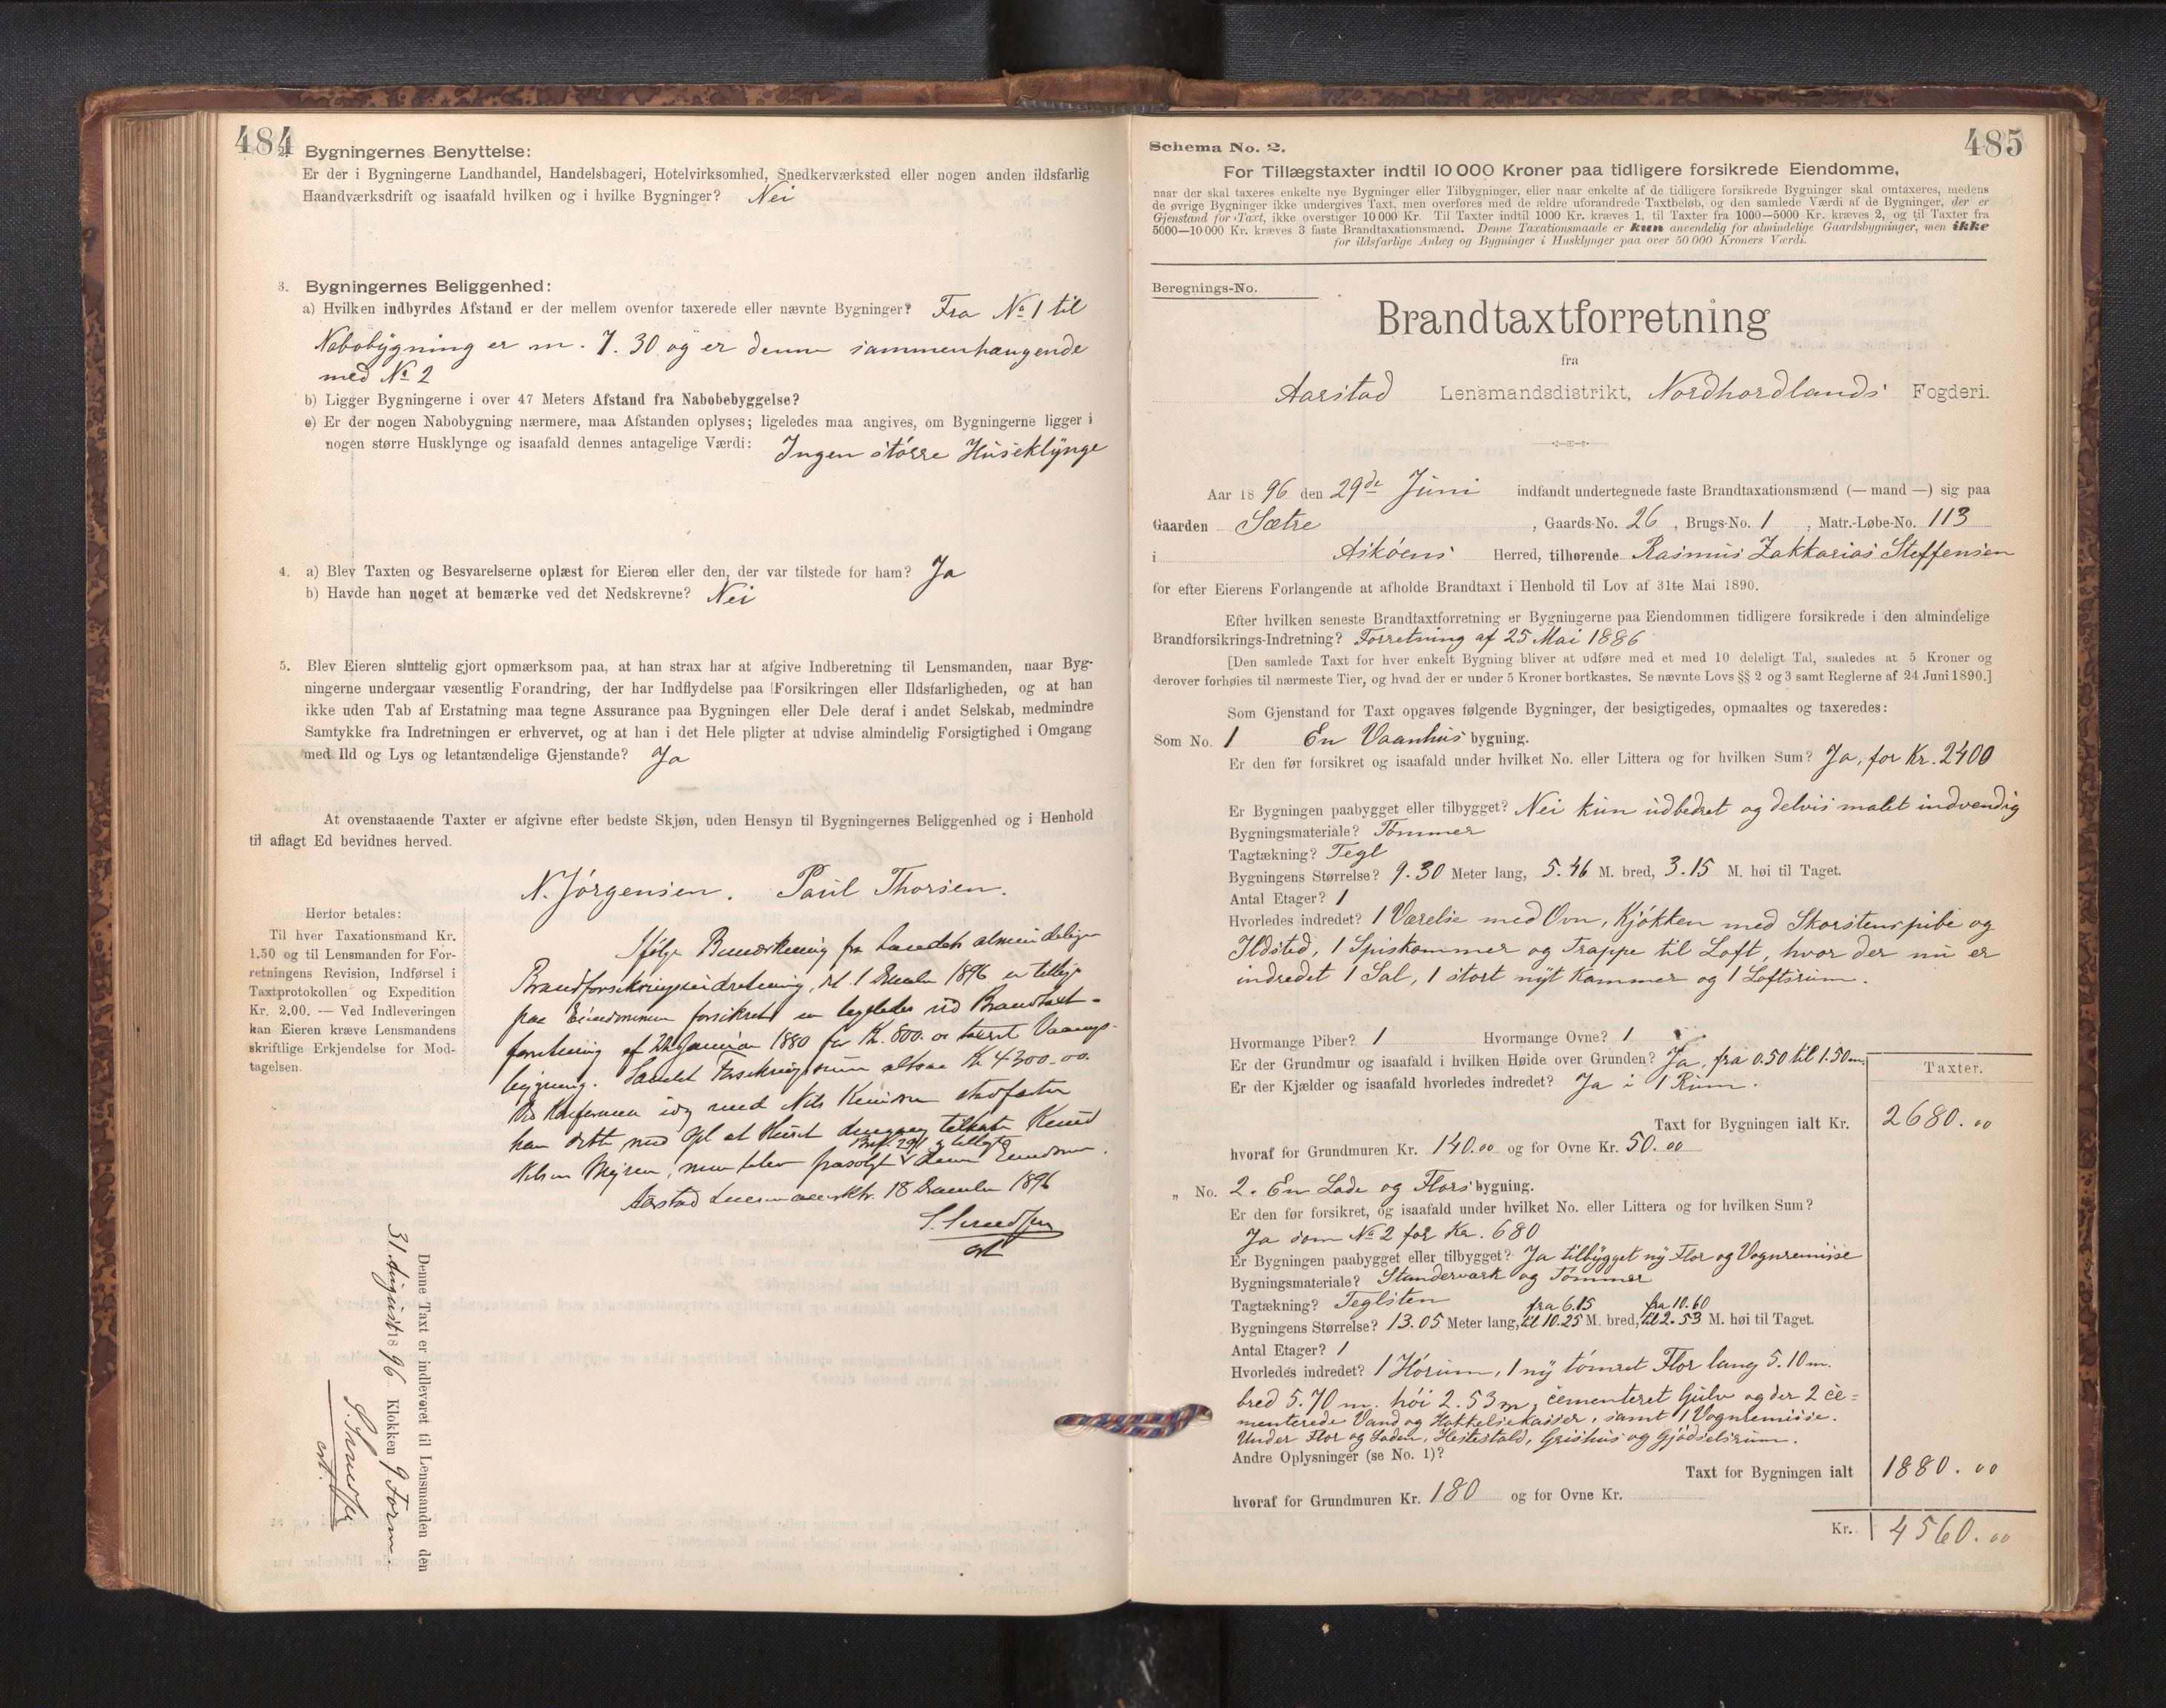 484
2. Bygningernes Benyttelse:
Er der i Bygningerne Landhandel, Handelsbageri, Hotelvirksomhed, Snedkerværksted eller nogen anden ildsfarlig
Haandværksdrift og isaafald hvilken og i hvilke Bygninger? Nei
3. Bygningernes Beliggenhed:
a) Hvilken indbyrdes Afstand er der mellem ovenfor taxerede eller nævnte Bygninger? Fra No 1 til
Nabobygning er m. 7.30 og er denne sammenhængende
med No 2
b) Ligger Bygningerne i over 47 Meters Afstand fra Nabobebyggelse?
c) Er der nogen Nabobygning nærmere, maa Afstanden oplyses; ligeledes maa angives, om Bygningerne ligger i
nogen større Husklynge og isaafald dennes antagelige Værdi: Ingen större Huseklynge
4. a) Blev Taxten og Besvarelserne oplæst for Eieren eller den, der var tilstede for ham? Ja
b) Havde han noget at bemærke ved det Nedskrevne? Nei
5. Blev Eieren sluttelig gjort opmærksom paa, at han strax har at afgive Indberetning til Lensmanden, naar Byg-
ningerne undergaar væsentlig Forandring, der har Indflydelse paa Forsikringen eller Ildsfarligheden, og at han
ikke uden Tab af Erstatning maa tegne Assurance paa Bygningen eller Dele deraf i andet Selskab, medmindre
Samtykke fra Indretningen er erhvervet, og at han i det Hele pligter at udvise almindelig Forsigtighed i Omgang
med Ild og Lys og letantændelige Gjenstande? Ja
At ovenstaaende Taxter er afgivne efter bedste Skjøn, uden Hensyn til Bygningernes Beliggenhed og i Henhold
til aflagt Ed bevidnes herved.
N. Jörgensen. Paul Thorsen.
Herfor betales:
Til hver Taxationsmand Kr.
1.50 og til Lensmanden for For-
retningens Revision, Indførsel i
Taxtprotokollen og Expedition
Kr. 2.00. — Ved Indleveringen
kan Eieren kræve Lensmandens
skriftlige Erkjendelse for Mod-
tagelsen.
Ifølge Bemærkning fra Landets almindelige
Brandforsikringsindretning, dat. 1 December 1896 er tillige
paa Eiendommen forsikret en ved Brandtaxt-
forretning af 22 Januar 1880 for Kr. 800.00 taxeret Vaanings-
bygning. Samlet Forsikringssum altsaa Kr 4300-00.
Ved Konferance idag med Nils
han dette med at Huset tilhører Knud
Nilsen men blev frasolgt denne Eiendom.
Aarstad Lensmandsktr. 18 December 1896
Denne Taxt er indleveret til Lensmanden den
31 August 1896 Klokken 9 Form.
485
Schema No. 2.
For Tillægstaxter indtil 10 000 Kroner paa tidligere forsikrede Eiendomme,
naar der skal taxeres enkelte nye Bygninger eller Tilbygninger, eller naar enkelte af de tidligere forsikrede Bygninger skal omtaxeres, medens
de øvrige Bygninger ikke undergives Taxt, men overføres med de ældre uforandrede Taxtbeløb, og den samlede Værdi af de Bygninger, der er
Gjenstand for Taxt, ikke overstiger 10 000 Kr. Til Taxter indtil 1000 Kr. kræves 1, til Taxter fra 1000—5000 Kr. kræves 2, og til Taxter fra
5000—10 000 Kr. kræves 3 faste Brandtaxationsmænd. Denne Taxationsmaade er kun anvendelig for almindelige Gaardsbygninger, men ikke
for ildsfarlige Anlæg og Bygninger i Husklynger paa over 50 000 Kroners Værdi.
Beregnings-No.
Brandtaxtforretning
fra
Aarstad Lensmandsdistrikt, Nordhordlands Fogderi.
Aar 1896 den 29de Juni indfandt undertegnede faste Brandtaxationsmænd (— mand —) sig paa
Gaarden Sætre , Gaards-No. 26 , Brugs-No. 1 , Matr.-Løbe-No. 113
i Asköens Herred, tilhørende Rasmus Zakkarias Steffensen
for efter Eierens Forlangende at afholde Brandtaxt i Henhold til Lov af 31te Mai 1890.
Efter hvilken seneste Brandtaxtforretning er Bygningerne paa Eiendommen tidligere forsikrede i den almindelige
Brandforsikrings-Indretning? Forretning af 25 Mai 1886
[Den samlede Taxt for hver enkelt Bygning bliver at udføre med et med 10 deleligt Tal, saaledes at 5 Kroner og
derover forhøies til nærmeste Tier, og hvad der er under 5 Kroner bortkastes. Se nævnte Lovs §§ 2 og 3 samt Reglerne af 24 Juni 1890.]
Som Gjenstand for Taxt opgaves følgende Bygninger, der besigtigedes, opmaaltes og taxeredes:
Som No. 1 En Vaanhus bygning.
Er den før forsikret og isaafald under hvilket No. eller Littera og for hvilken Sum? Ja, for Kr. 2400
Er Bygningen paabygget eller tilbygget? Nei kun udbedret og delvis malet indvendig
Bygningsmateriale? Tömmer
Tagtækning? Tegl
Bygningens Størrelse? 9.30 Meter lang, 5.46 M. bred, 3.15 M. høi til Taget.
Antal Etager? 1
Hvorledes indredet? 1 Værelse med Ovn, Kjökken med Skorstenspibe og
Ildsted, 1 Spiskammer og Trappe til Loft, hvor der nu er
indredet 1 Sal, 1 stort nyt Kammer og 1 Loftsrum.
Hvormange Piber? 1 Hvormange Ovne? 1
Er der Grundmur og isaafald i hvilken Høide over Grunden? Ja, fra 0.50 til 1.50 m.
Er der Kjælder og isaafald hvorledes indredet? Ja i 1 Rum.
Taxter.
Taxt for Bygningen ialt Kr. 2680.00
hvoraf for Grundmuren Kr. 140.00 og for Ovne Kr. 50.00
„ No. 2. En Lade og Flors bygning.
Er den før forsikret, og isaafald under hvilket No. eller Littera og for hvilken Sum?
Ja som No 2 for Kr. 680
Er Bygningen paabygget eller tilbygget? Ja tilbygget ny Flor og Vognremisse
Bygningsmateriale? Standerværk og Tömmer
Tagtækning? Teglsten
Bygningens Størrelse? 13.05 Meter lang, fra 6.15 til 10.25 M. bred, fra 10.60 til 2.53 M. høi til Taget.
Antal Etager? 1
Hvorledes indredet? 1 Hörum, 1 ny tömret Flor lang 5.10 m.
bred 5.70 m. höi 2.53 m, cementeret Gulv og der 2 ce=
menterede Vand og Hakkelsekasser, samt 1 Vognremisse.
Under Flor og Laden, Hestestald, Grishus og Gjödselsrum.
Andre Oplysninger (se No. 1)?
Taxt for Bygningen ialt 1880.00
hvoraf for Grundmuren Kr. 180 og for Ovne Kr.
Kr. 4560.00